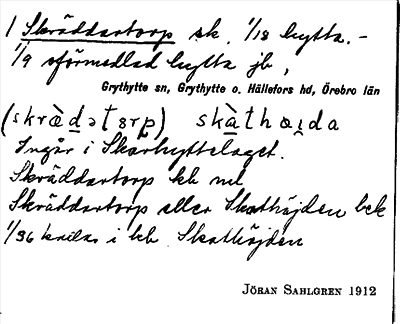 1 Skräddartorp sk. 1/18 hytta. –
1/9 oförmedlad hytta jb,
Grythytte sn, Grythytte o. Hällefors hd, Örebro län
(skrὰdətɞrp) skὰthœida
Ingår i Skarhyttelaget.
Skräddartorp kb nu
Skräddartorp eller Skathöjden bek
1/96 kallas i kb Skathöjden
JÖRAN SAHLGREN 1912